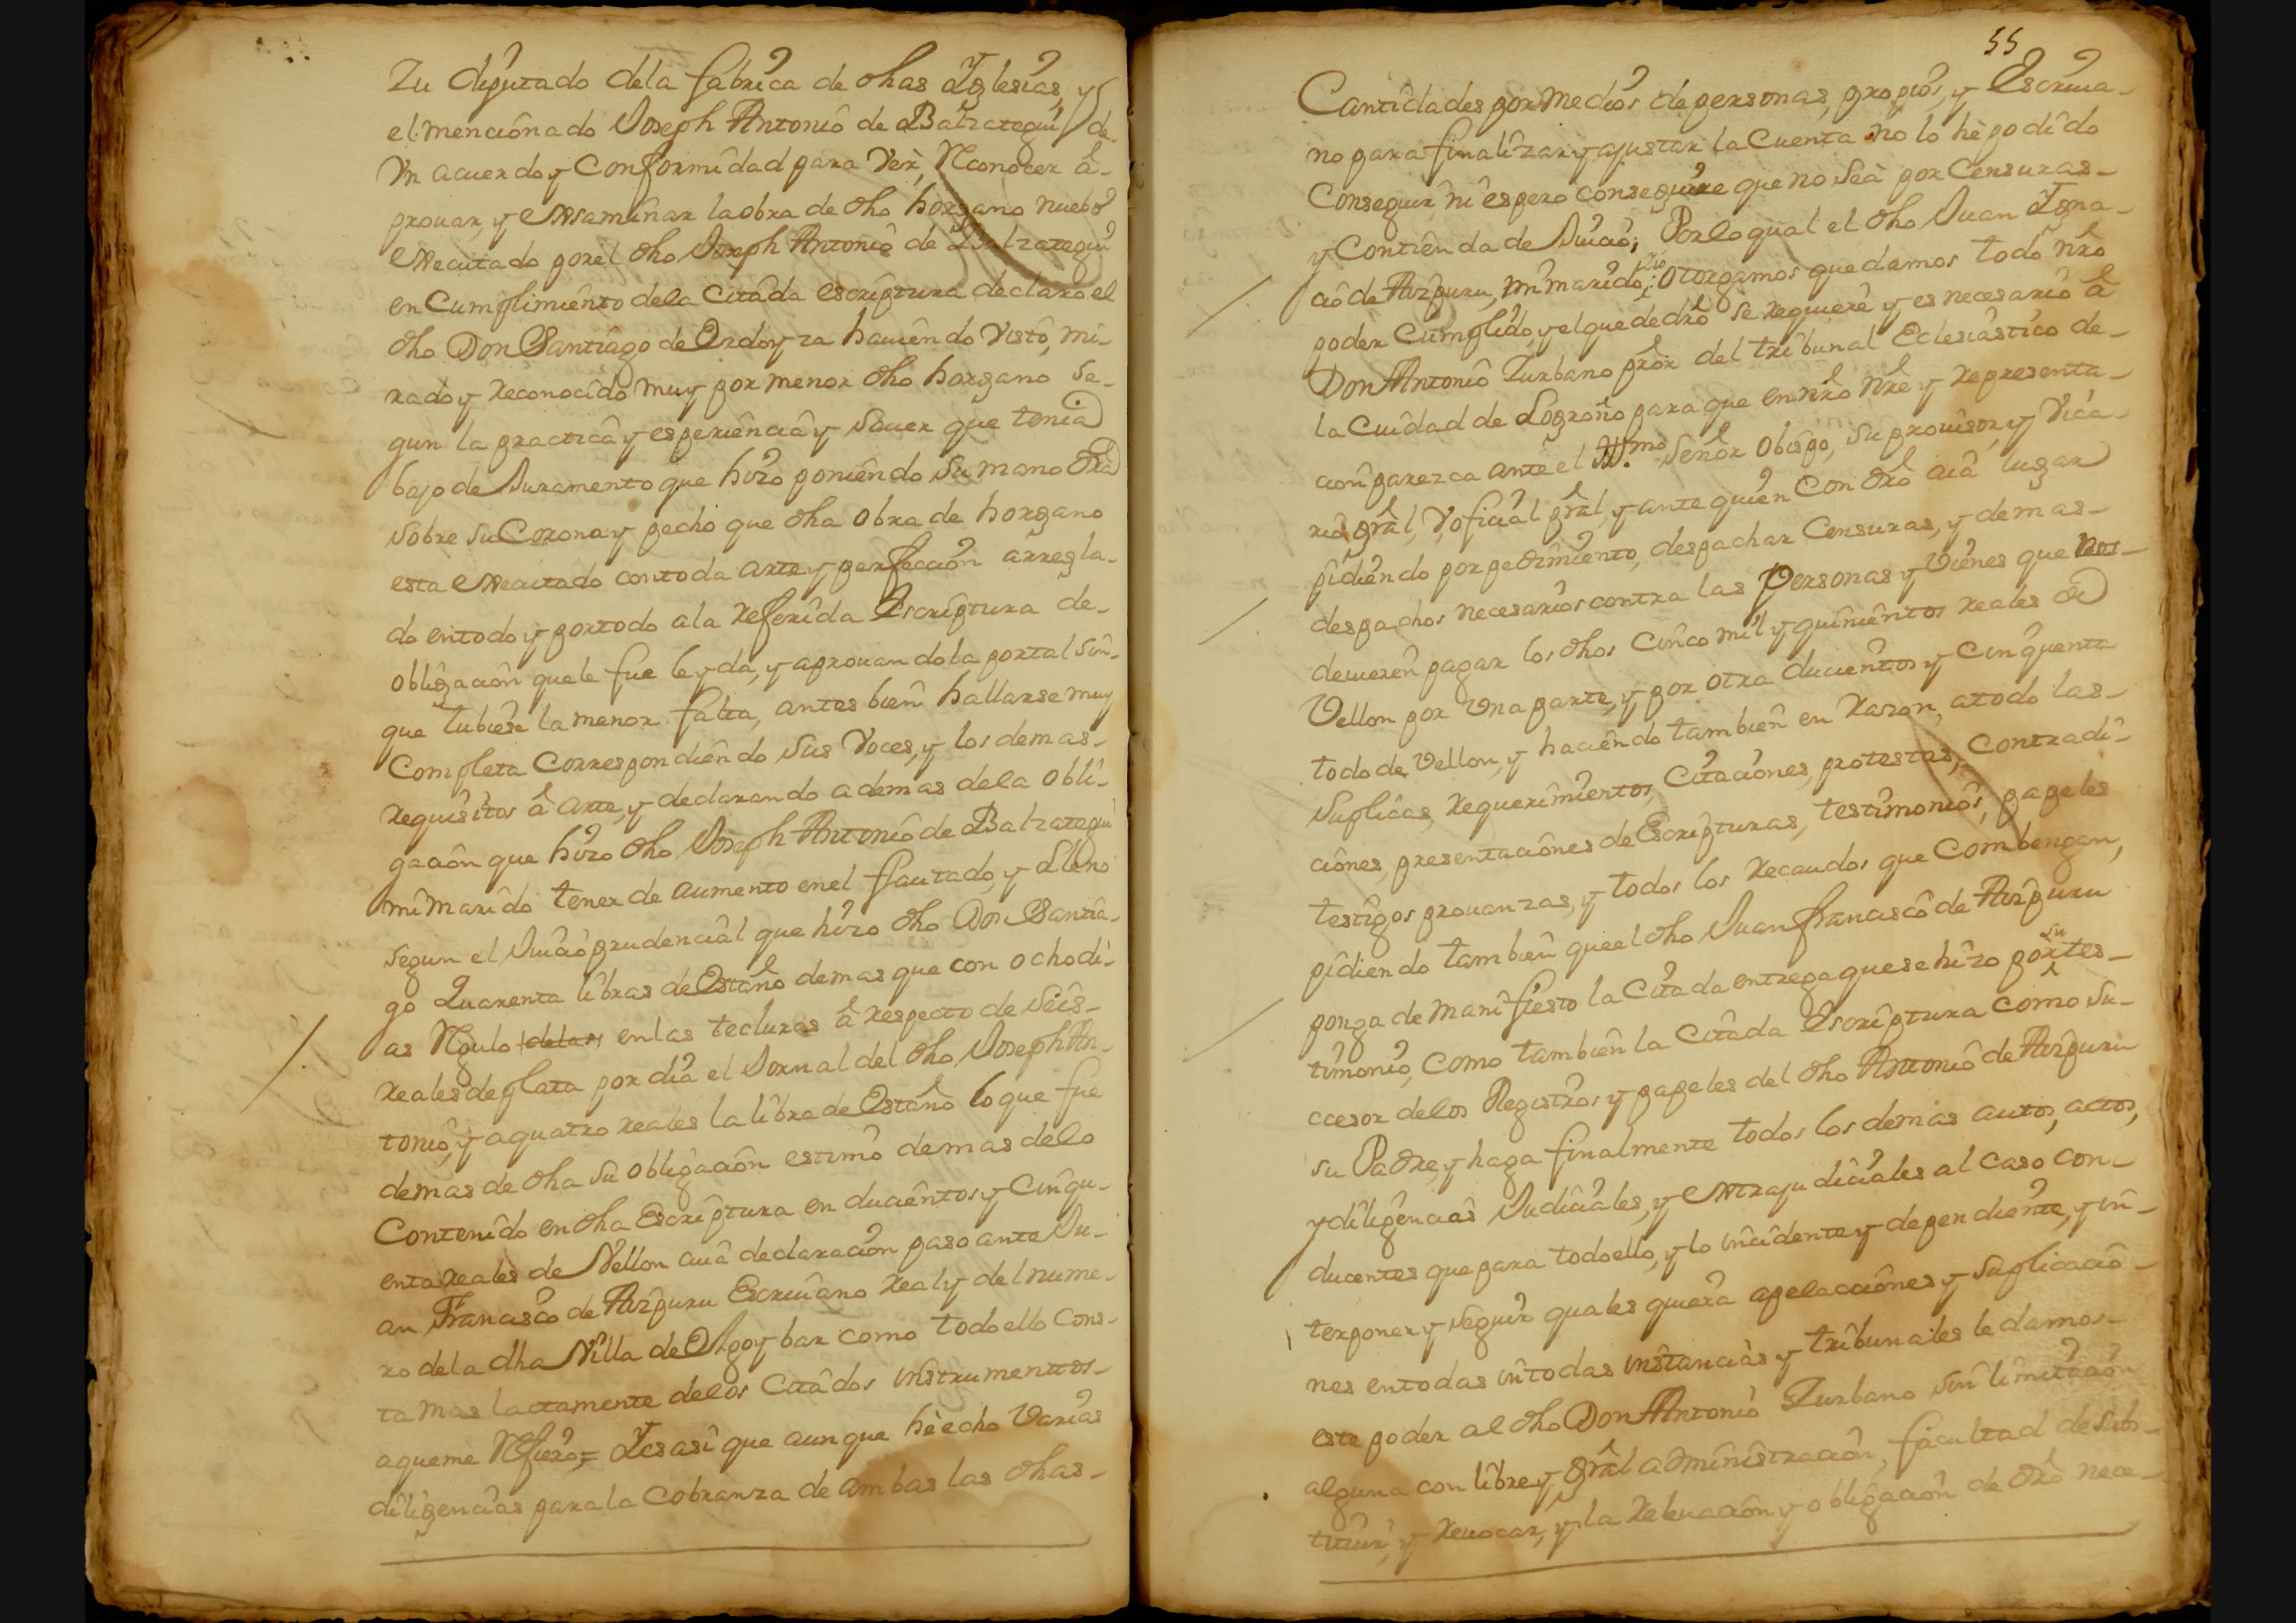 Zu diputado dela fabrica de dhas Yglesias, y
el mencionado Joseph Antonio de Balzategui de
Vn acuerdo y Conformidad para Ver, Reconocer â
prouar, y exsaminar la obra de dho horgano nuebo
executado por el dho Joseph Antonio de Balzategui
en Cumplimiento dela Citada escriptura declaro el
dho Don Santiago de Ordoyza hauiendo Visto, mi-
rado y reconocido muy por menor dho horgano se-
gun la practica y esperiencia y sauer que tenia
bajo de Juramento que hizo poniendo su mano dra
sobre su Corona y pecho que dha obra de horgano
esta executado con toda arte y perfeccion arregla-
do entodo y por todo ala referida Escriptura de-
obligacion quele fue leyda, y aprouandola por tal sin-
que tubiese la menor falta, antes bien hallarse muy
Completa Correspondiendo sus Voces, y los demas-
requisitos â arte, y declarando ademas dela obli-
gacion que hizo dho Joseph Antonio de Balzategui
mi marido tener de aumento enel flautado, y Lleno
segun el Juicio prudencial que hizo dho Don Santia-
go Quarenta libras de Estaño demas que con ocho di-
as Regulo delas en las tecluras â respecto de seis-
reales de plata por dia el Jornal del dho Joseph An-
tonio, y aquatro reales la libra de Estaño lo que fue
demas de dha su obligacion estimo demas delo
Contenido en dha Escriptura en ducientos y Cinqu-
enta reales de Vellon cuia declaracion paso ante Ju-
an Francisco de Aizpuru Escriuano real y del nume-
ro dela dha Villa de Elgoybar como todo ello cons-
ta mas lactamente delos Citados instrumenttos-
aqueme Refiero = Yes asi que aunque he echo Varias
diligencias para la Cobranza de ambas las dhas-
55
Cantidades por medios de personas, propios, y Escriua-
no para finalizar y ajustar la Cuenta no lo hè podido
Conseguir, ni espero conseguire que no sea por Censuras-
y Contienda de Juicio; Por lo qual el dho Juan Igna-
cio de Aizpuru, mi marido, Otorgamos quedamos todo nro
poder Cumplido, y el que de dro se requiere y es necesario â
Don Antonio Zurbano pror del tribunal Eclesiastico de-
la Cuidad de Logroño para que en nro nre y representa-
cion parezca ante el Illmo Señor Obispo, su prouisor, y Vica-
rio gral, V oficial gral, y ante quien Con dro aia lugar
pidiendo por pedimiento, despachar Censuras, y demas-
despachos necesarios contra las Personas y Vienes que nos-
deueren pagar los dhos Cinco mil y quinientos reales de
Vellon por Vna parte, y por otra ducientos y Cinquenta
todo de Vellon, y haciendo tambien en razon, atodo las-
suplicas, requerimientos, Citaciones, protestas, Contradi-
ciones, presentaciones de Escripturas, testimonios, papeles
testigos prouanzas, y todos los recaudos que Combengan,
pidiendo tambien que el dho Juan francisco de Aizpuru
ponga de manifiesto la Citada entrega que se hizo por su tes-
timonio, como tambien la Citada Escriptura como su-
ccesor delos Registros y papeles del dho Antonio de Aizpuru
su Padre, y haga finalmente todos los demas autos, actos,
y diligencias Judiciales, y extrajudiciales al caso con-
ducentes que para todo ello, y lo incidente y dependiente, y in-
terponer y seguir quales quiera apelacciones y suplicacio-
nes entodas intodas instancias y tribunales le damos-
este poder al dho Don Antonio Zurbano sin limitacion
alguna con libre y gral administracion, facultad de subs-
tituir, y reuocar, y la releuacion y obligacion de dro nece-